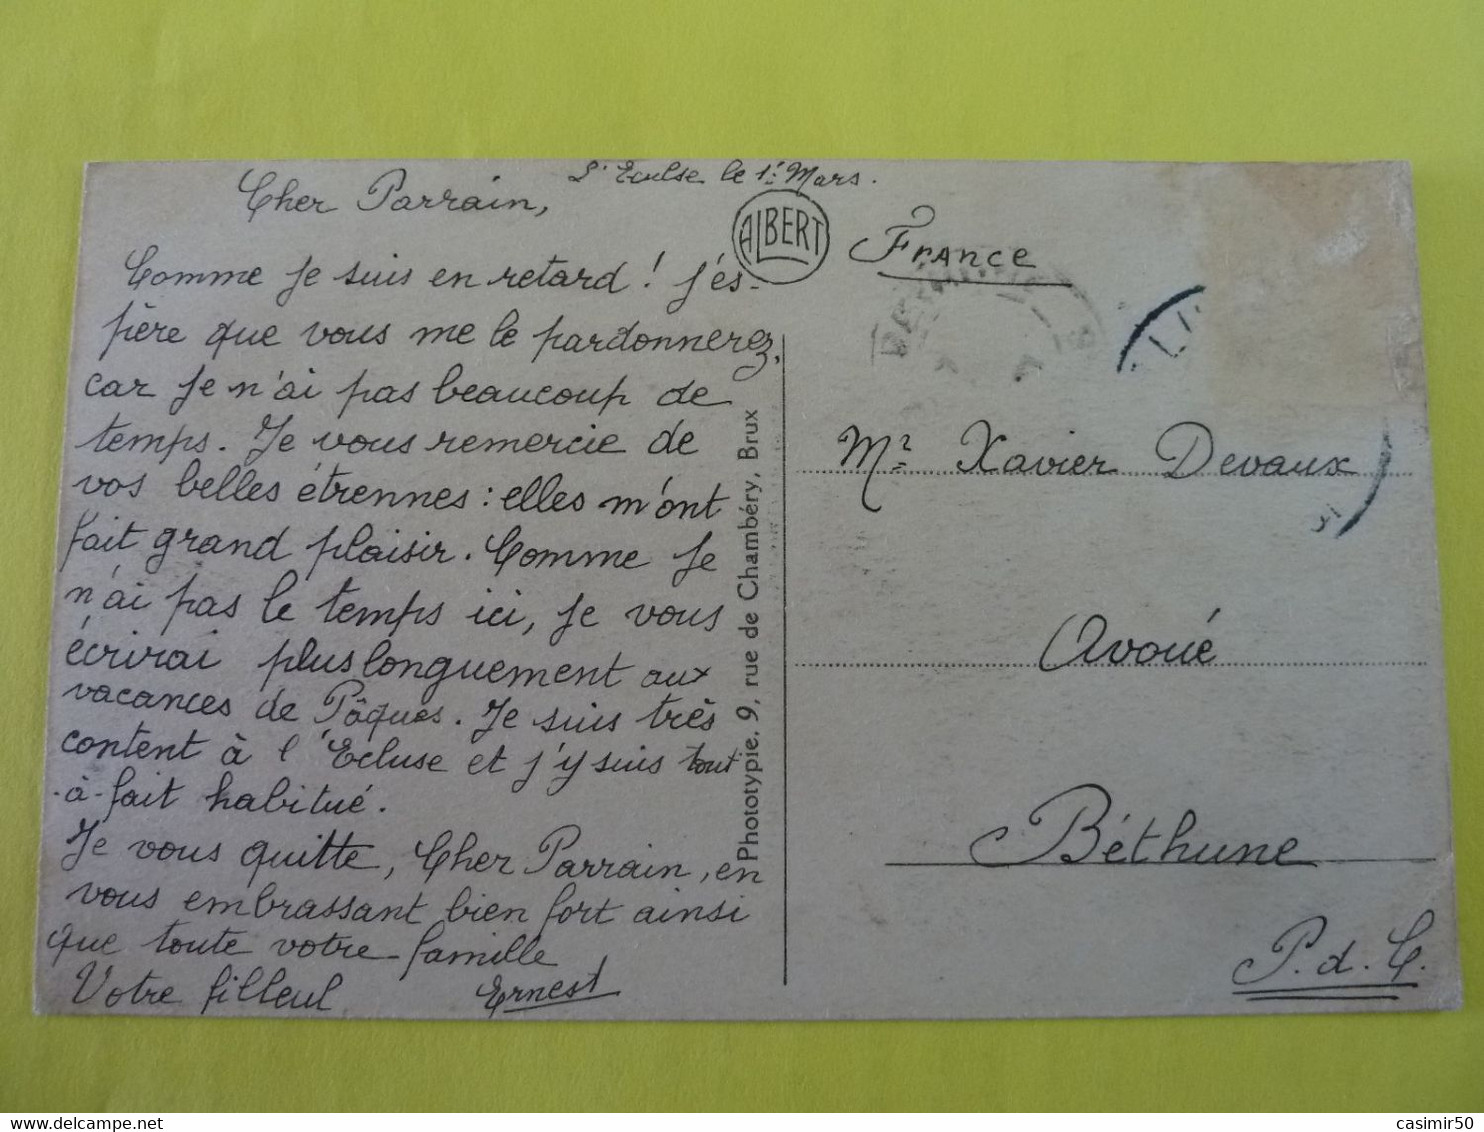 L'Ecluse le 1er Mars.
Cher Parrain,
Comme je suis en retard ! j'es-
père que vous me le pardonnerez,
car je n'ai pas beaucoup de
temps. Je vous remercie de
vos belles étrennes : elles m'ont
fait grand plaisir. Comme je
n'ai pas le temps ici, je vous
écrirai plus longuement aux
vacances de Pâques. Je suis très
content à l'Ecluse et j'y suis tout
-à-fait habitué.
Je vous quitte, Cher Parrain, en
vous embrassant bien fort ainsi
que toute votre famille
Votre filleul Ernest
ALBERT
Phototypie, 9, rue de Chambéry, Brux
France
Mr Xavier Devaux
Avoué
Béthune
P.d.C.
casimir50